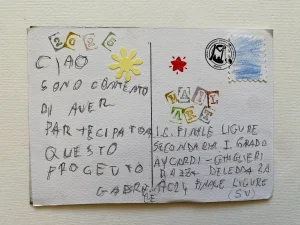 2026
CIAO
SONO CONTENTO
DI AVER
PARTECIPATO A
QUESTO
PROGETTO
GABRIELE
MAIL
ART
I.C. FINALE LIGURE
SECONDARIA I GRADO
AYCARDI - GHIGLIERI
PIAZZA DELEDDA 2A
17024 FINALE LIGURE
(SV)